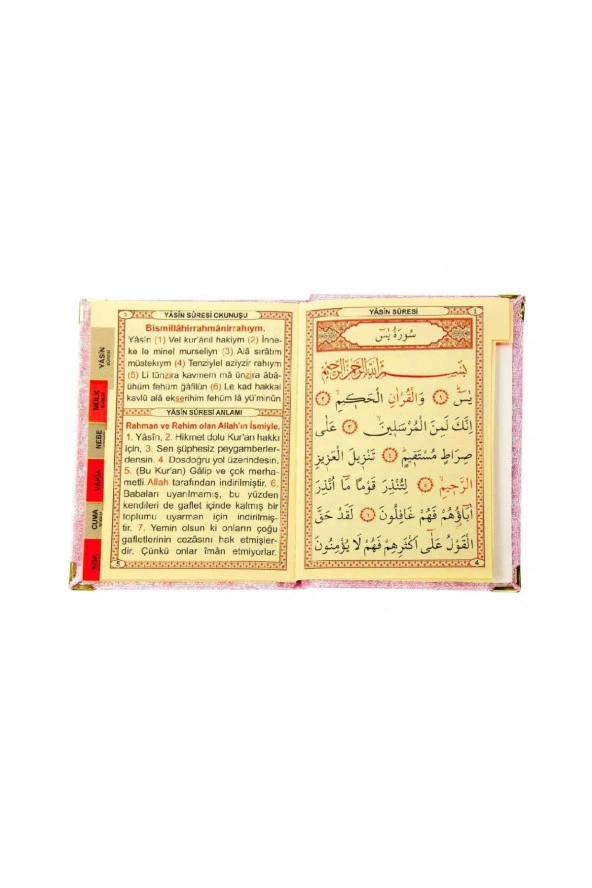 YÂSÎN SÛRESİ OKUNUŞU
Bismillâhirrahmânirrahıym.
Yâsîn (1) Vel kur'ânil hakiym (2) İnne-
ke le minel murseliyn (3) Alâ sırâtım
müstekıym (4) Tenziylel aziyzir rahıym
(5) Li tünzira kavmem mâ ünzira âbâ-
ühüm fehüm ğâfilûn (6) Le kad hakkal
kavlü alâ ekserihim fehüm lâ yü'minûn
YÂSÎN SÛRESİ ANLAMI
Rahman ve Rahim olan Allah'ın İsmiyle.
1. Yâsîn, 2. Hikmet dolu Kur'an hakkı
için, 3. Sen şüphesiz peygamberler-
densin. 4. Dosdoğru yol üzerindesin.
5. (Bu Kur'an) Gâlip ve çok merha-
metli Allah tarafından indirilmiştir. 6.
Babaları uyarılmamış, bu yüzden
kendileri de gaflet içinde kalmış bir
toplumu uyarman için indirilmiş-
tir. 7. Yemin olsun ki onların çoğu
gafletlerinin cezâsını hak etmişler-
dir. Çünkü onlar îmân etmiyorlar.
5
YÂSÎN
MÜLK
NEBE
VAKIA
CUMA
KISA
YÂSÎN SÛRESİ
سُورَةُ يٰسٓ
بِسْمِ اللّٰهِ الرَّحْمٰنِ الرَّحِيمِ
يٰسٓ ﴿١﴾ وَالْقُرْاٰنِ الْحَكِيمِ ﴿٢﴾
اِنَّكَ لَمِنَ الْمُرْسَلِينَ ﴿٣﴾ عَلٰى
صِرَاطٍ مُسْتَقِيمٍ ﴿٤﴾ تَنْزِيلَ الْعَزِيزِ
الرَّحِيمِ ﴿٥﴾ لِتُنْذِرَ قَوْمًا مَٓا اُنْذِرَ
اٰبَٓاؤُهُمْ فَهُمْ غَافِلُونَ ﴿٦﴾ لَقَدْ حَقَّ
الْقَوْلُ عَلٰٓى اَكْثَرِهِمْ فَهُمْ لَا يُؤْمِنُونَ
4